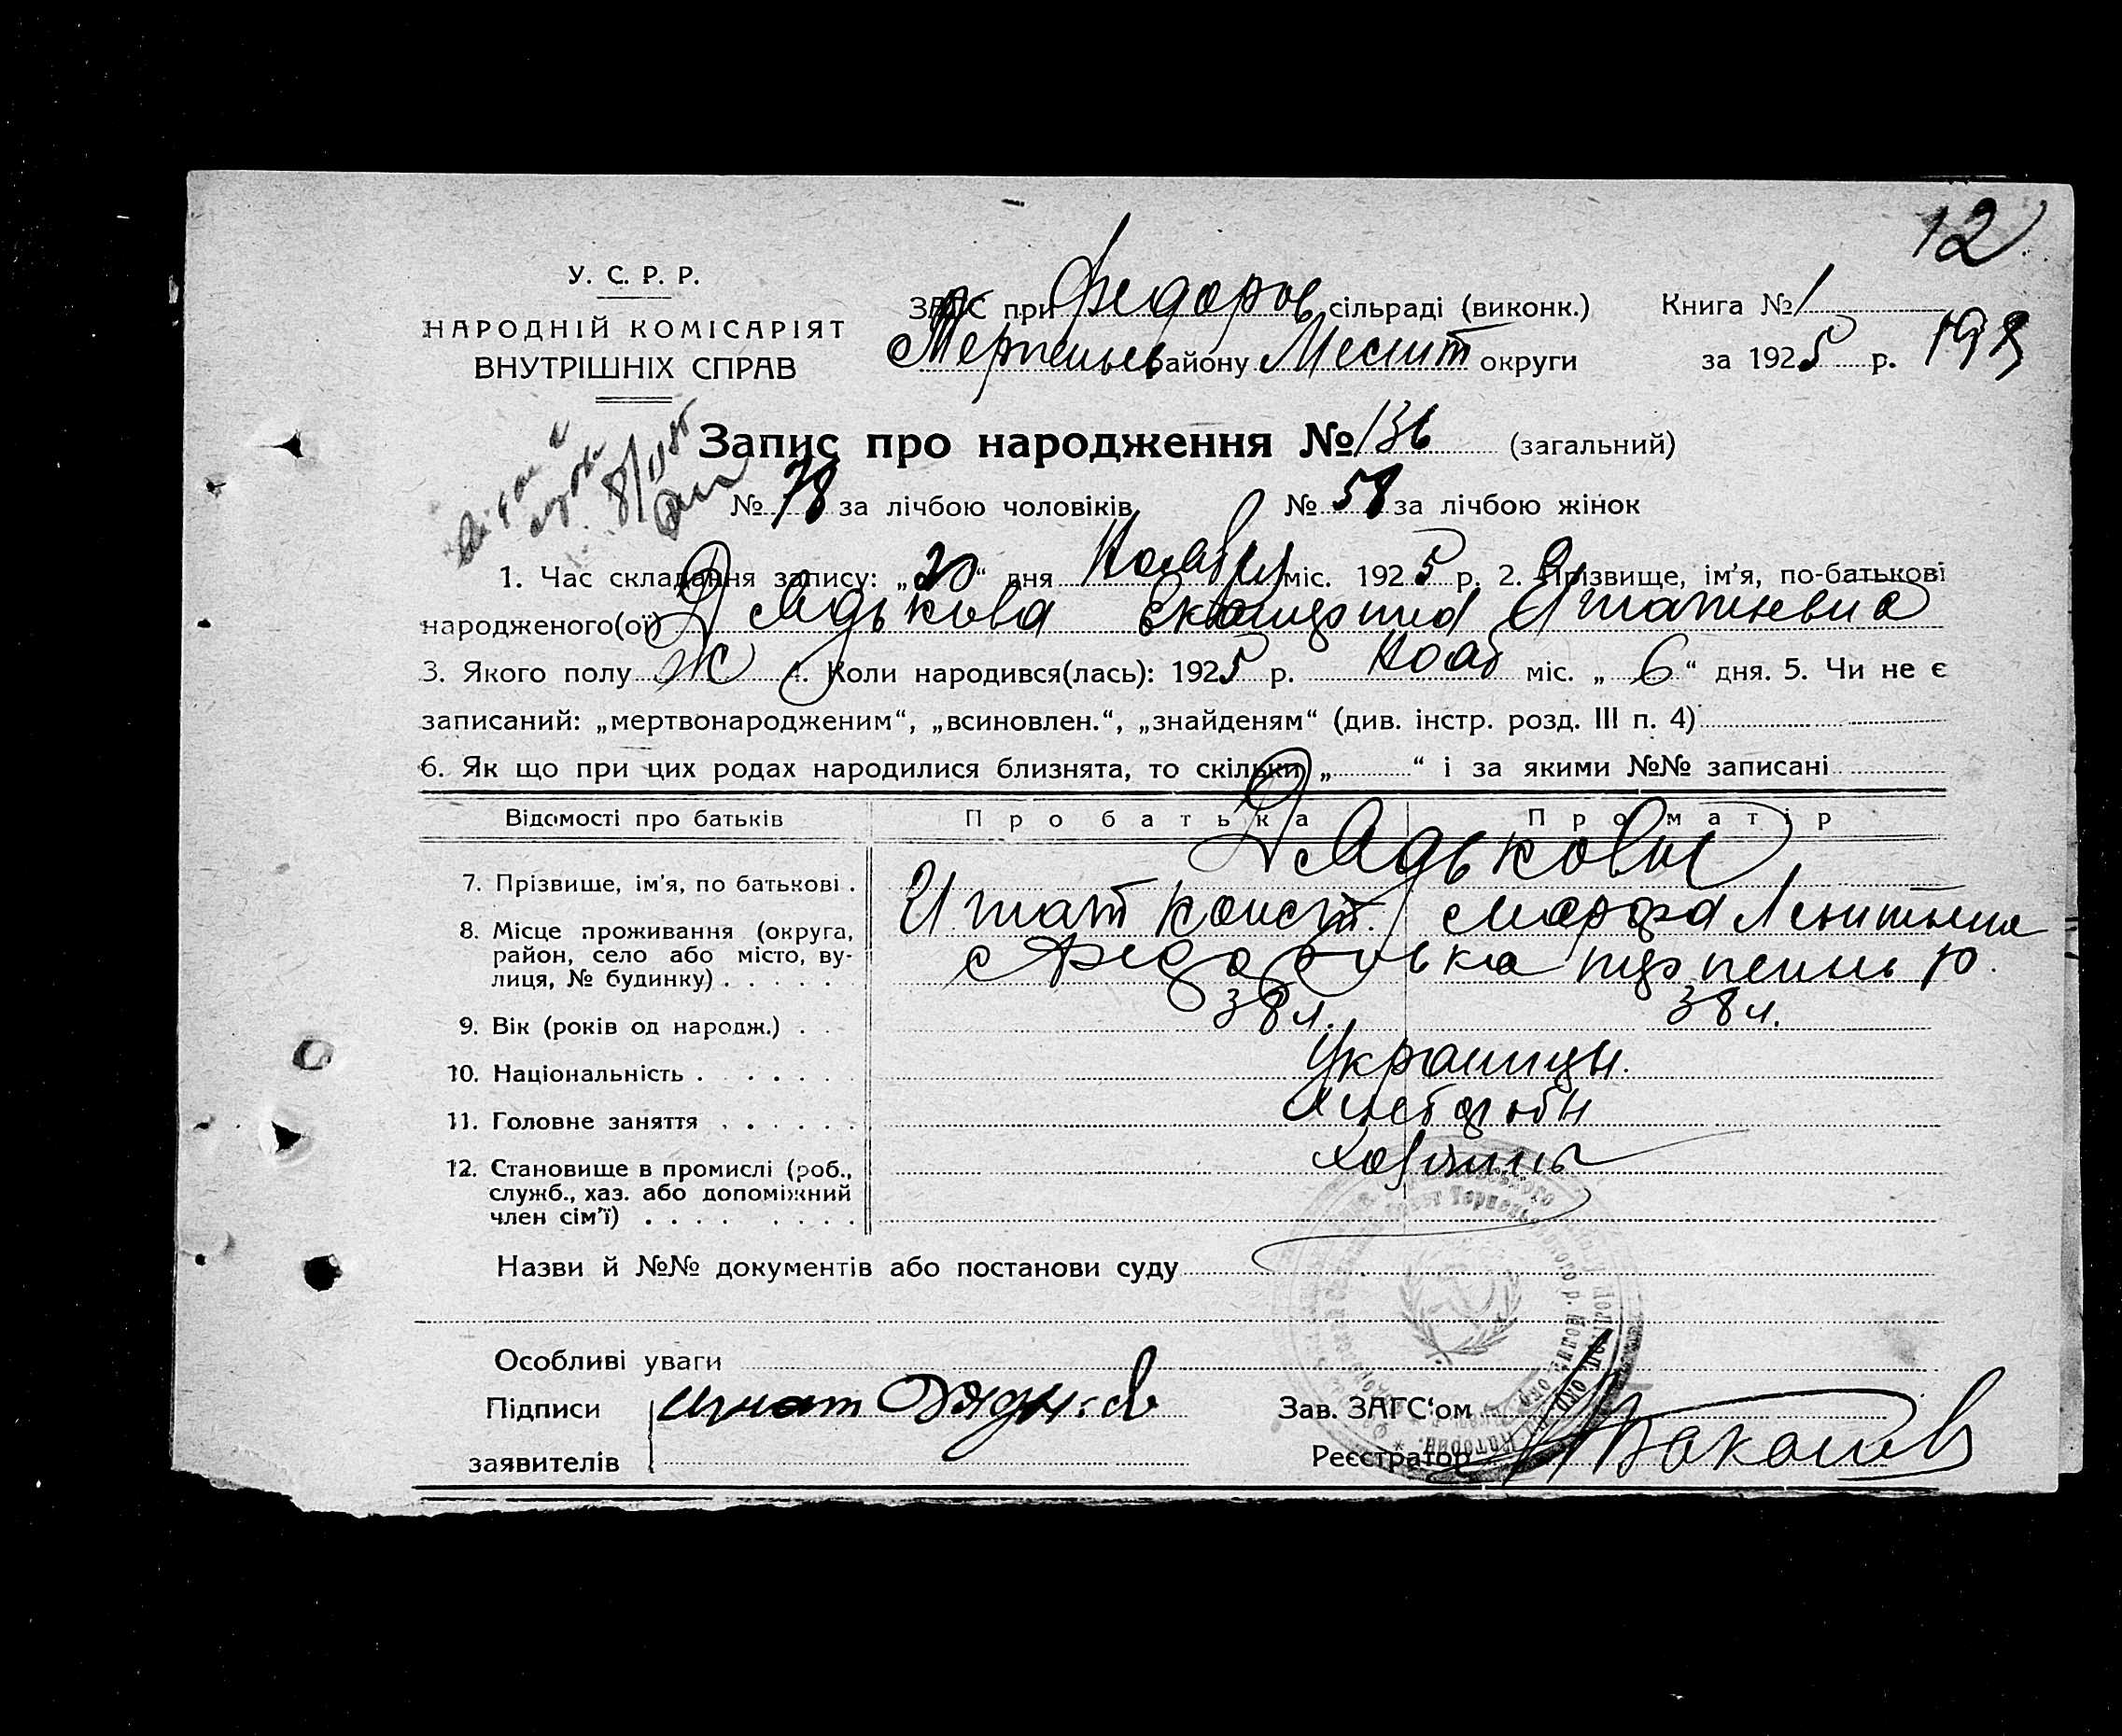 12
У. С. Р. Р.
НАРОДНІЙ КОМІСАРІЯТ
ВНУТРІШНІХ СПРАВ
ЗАГС при Федоров сільраді (виконк.)
Терпеньев району Мелит округи
Книга № 1
за 1925 р. 198
Запис про народження № 136 (загальний)
№ 78 за лічбою чоловіків № 58 за лічбою жінок
1. Час складання запису: „20“ дня Ноября міс. 1925 р. 2. Прізвище, ім’я, по-батькові
народженого(ої) Дядькова Екатерина Игнатьевна
3. Якого полу Ж 4. Коли народився(лась): 1925 р. Нояб міс. „6“ дня. 5. Чи не є
записаний: „мертвонародженим“, „всиновлен.“, „знайденям“ (див. інстр. розд. III п. 4)
6. Як що при цих родах народилися близнята, то скільки „ “ і за якими №№ записані
Відомості про батьків Про батька Про матір
Дядьковы
7. Прізвише, ім’я, по батькові . Игнат Конст. Марфа
8. Місце проживання (округа, район, село або місто, вулиця, № будинку) . . . . . с Федоровка терпень р.
9. Вік (років од народж.) . . 38 л. 38 л.
10. Національність . . . . . . Украинцы.
11. Головне заняття . . . . . . Хлебороб
12. Становище в промислі (роб., служб., хаз. або допоміжний член сім’ї) . . . . . . . . Хозяины
Назви й №№ документів або постанови суду
Особливі уваги
Підписи заявителів Игнат Дядьков
Зав. ЗАГС‘ом
Реєстратор